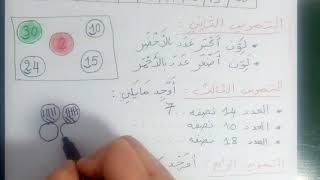 التمرين الثاني :
• لون أكبر عدد بالأخضر
• لون أصغر عدد بالأحمر
30 10
2
24 15
التمرين الثالث : أوجد ما يلي :
• العدد 14 نصفه .. 7
• العدد 10 نصفه ..
• العدد 18 نصفه ..
التمرين الرابع : أوجد